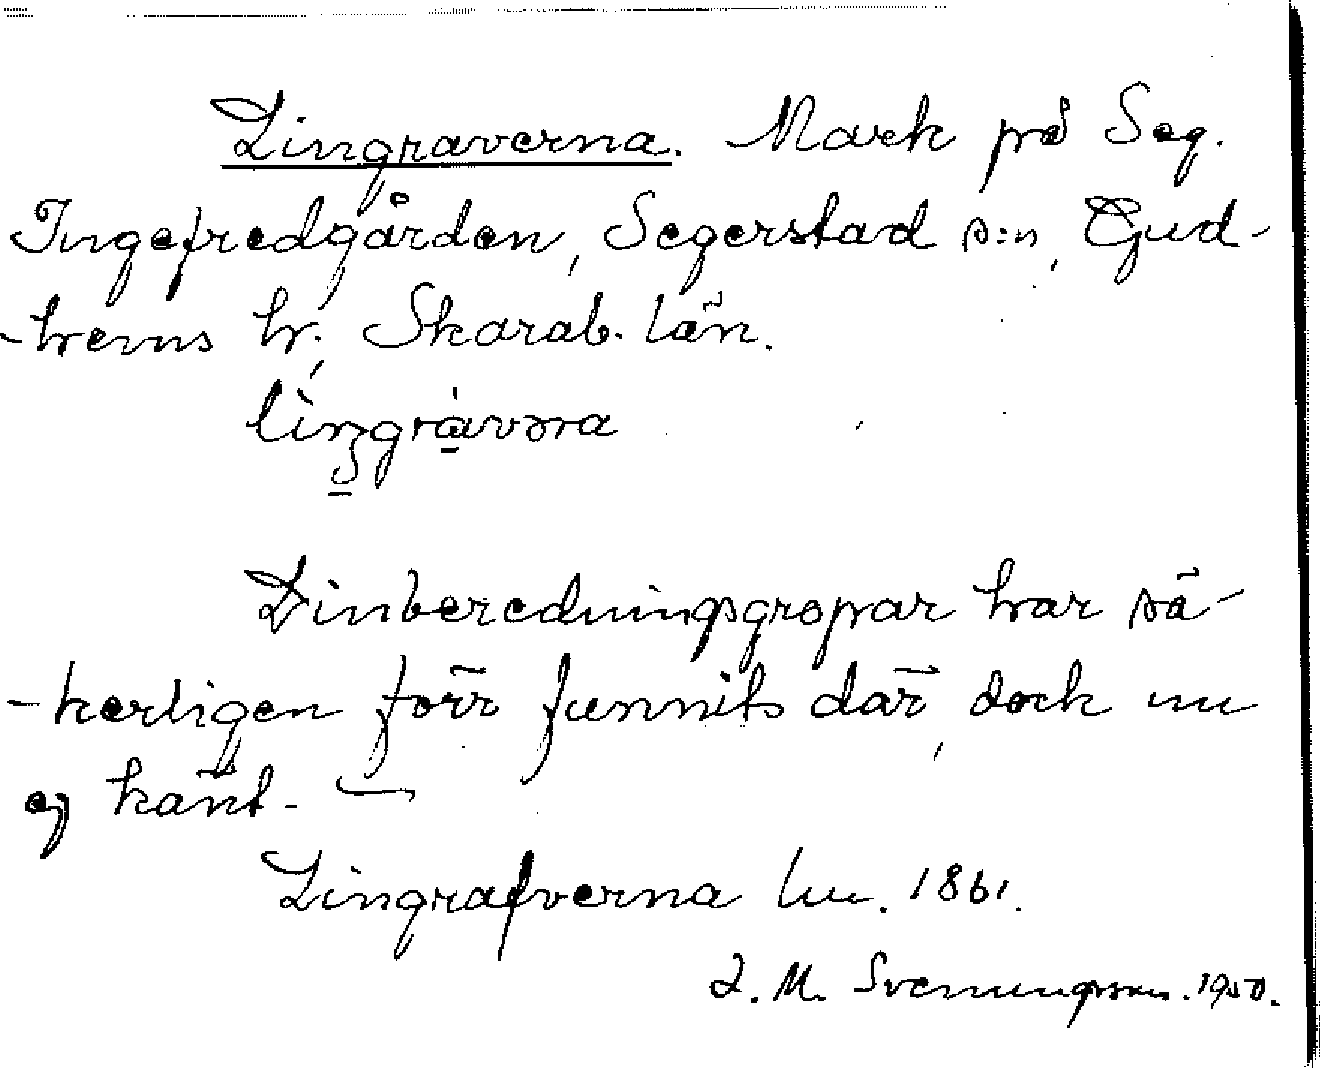 Lingraverna. Mark på Seg.
Ingefredgården, Segerstad s:n, Gud-
-hems hr, Skarab. län.
lìngràvəna
Linberedningsgropar har sä-
-kerligen förr funnits där, dock nu
ej känt. —
Lingrafverna lm. 1861.
I. M. Svenungsson. 1950.